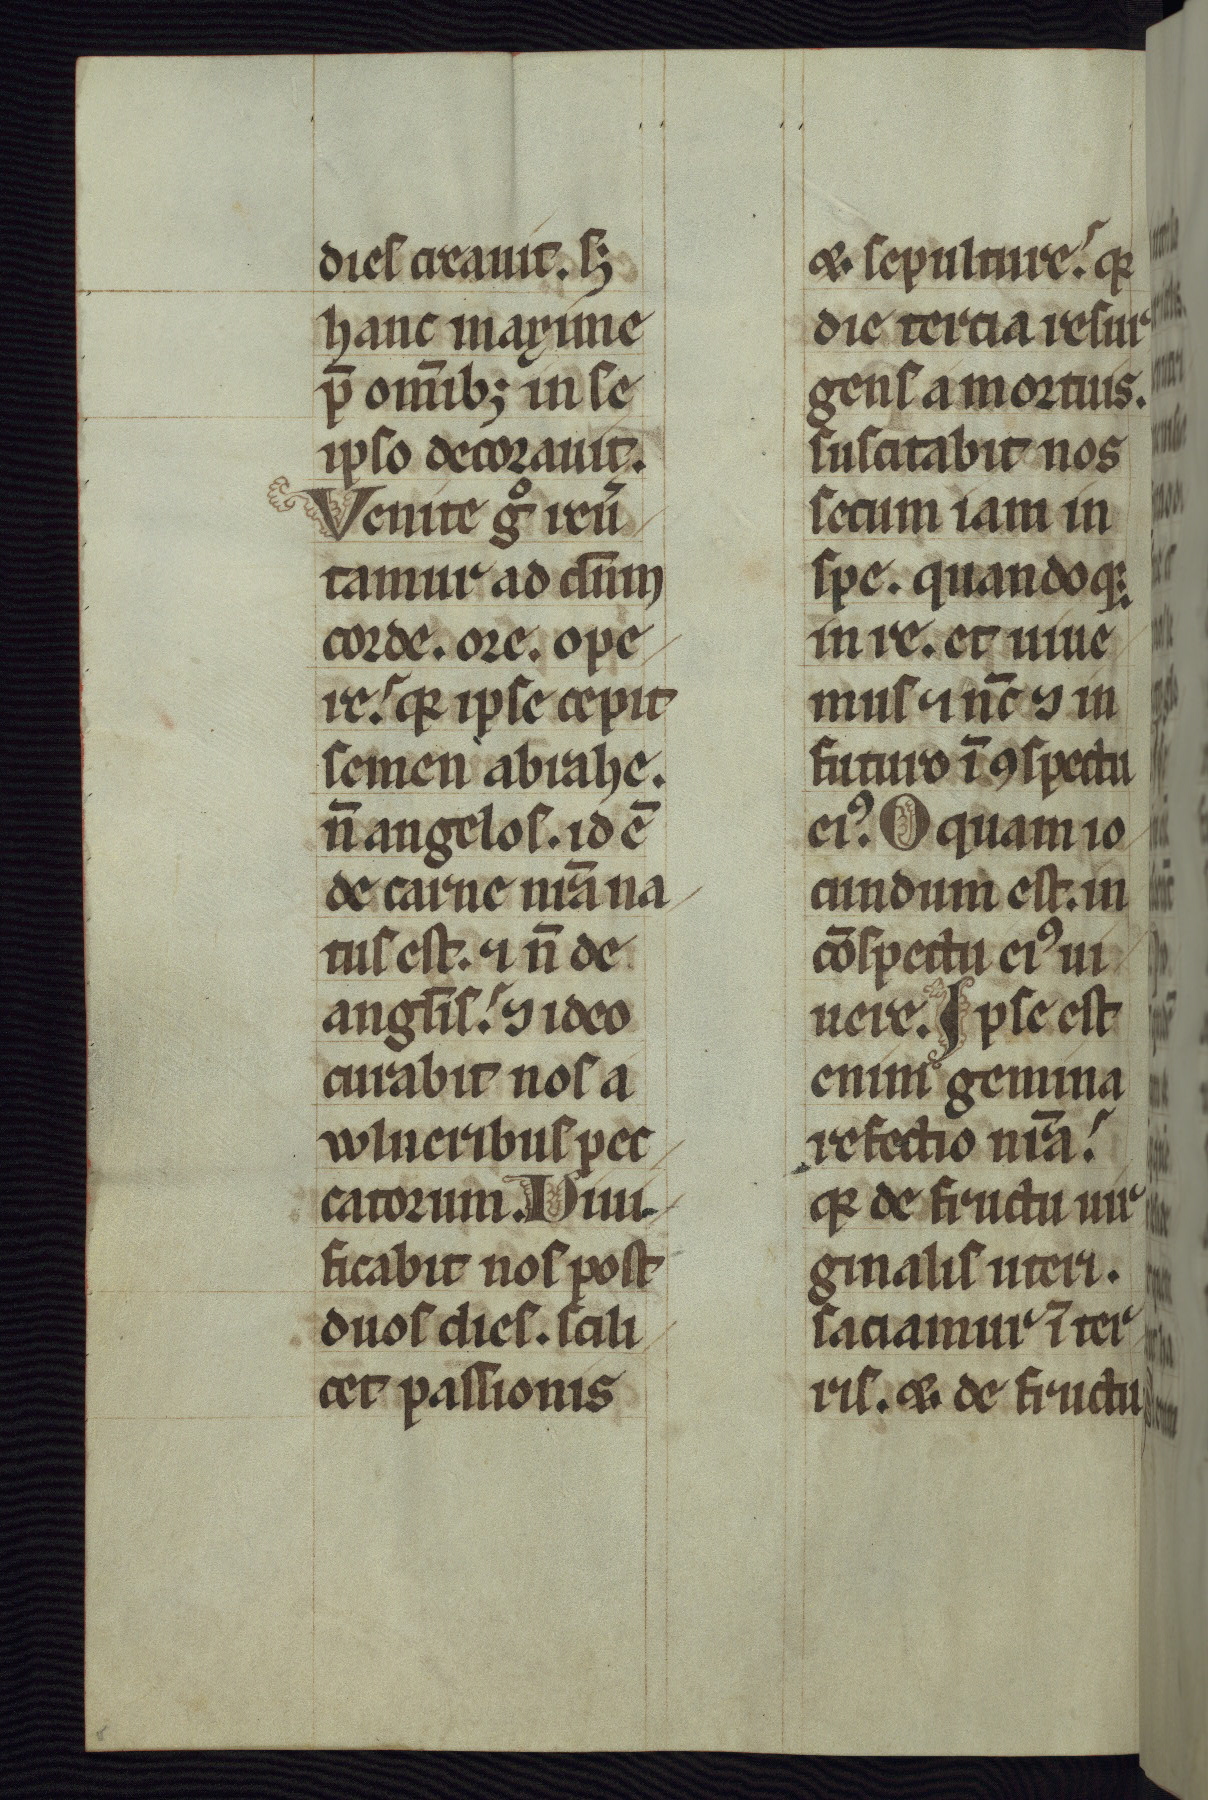 dies creauit. sꝫ
hanc maxime
p̄ om̄ibꝫ in se
ipso decorauit.
Venite gͦ reū
tamur ad dn̄m
corde. ore. ope
re! qꝛ ipse cepit
semen abrahe.
n̄ angelos. id ē
de carne nr̄a na
tus est. ⁊ n̄ de
angl̄is! ⁊ ideo
curabit nos a
wlneribus pec
catorum. Viui
ficabit nos post
duos dies. scili
cet passionis
&. sepulture! qꝛ
die tercia resur
gens a mortuis.
suscitabit nos
secum iam in
spe. quandoqꝫ
in re. et uiue
mus ⁊ nc̄ ⁊ in
futuro ī ꝯspectu
eiꝰ. O quam io
cundum est. in
cōspectu eiꝰ ui
uere. Ipse est
enim gemina
refectio nr̄a!
qꝛ de fructu uir
ginalis uteri.
saciamur ī ter
ris. &. de fructu